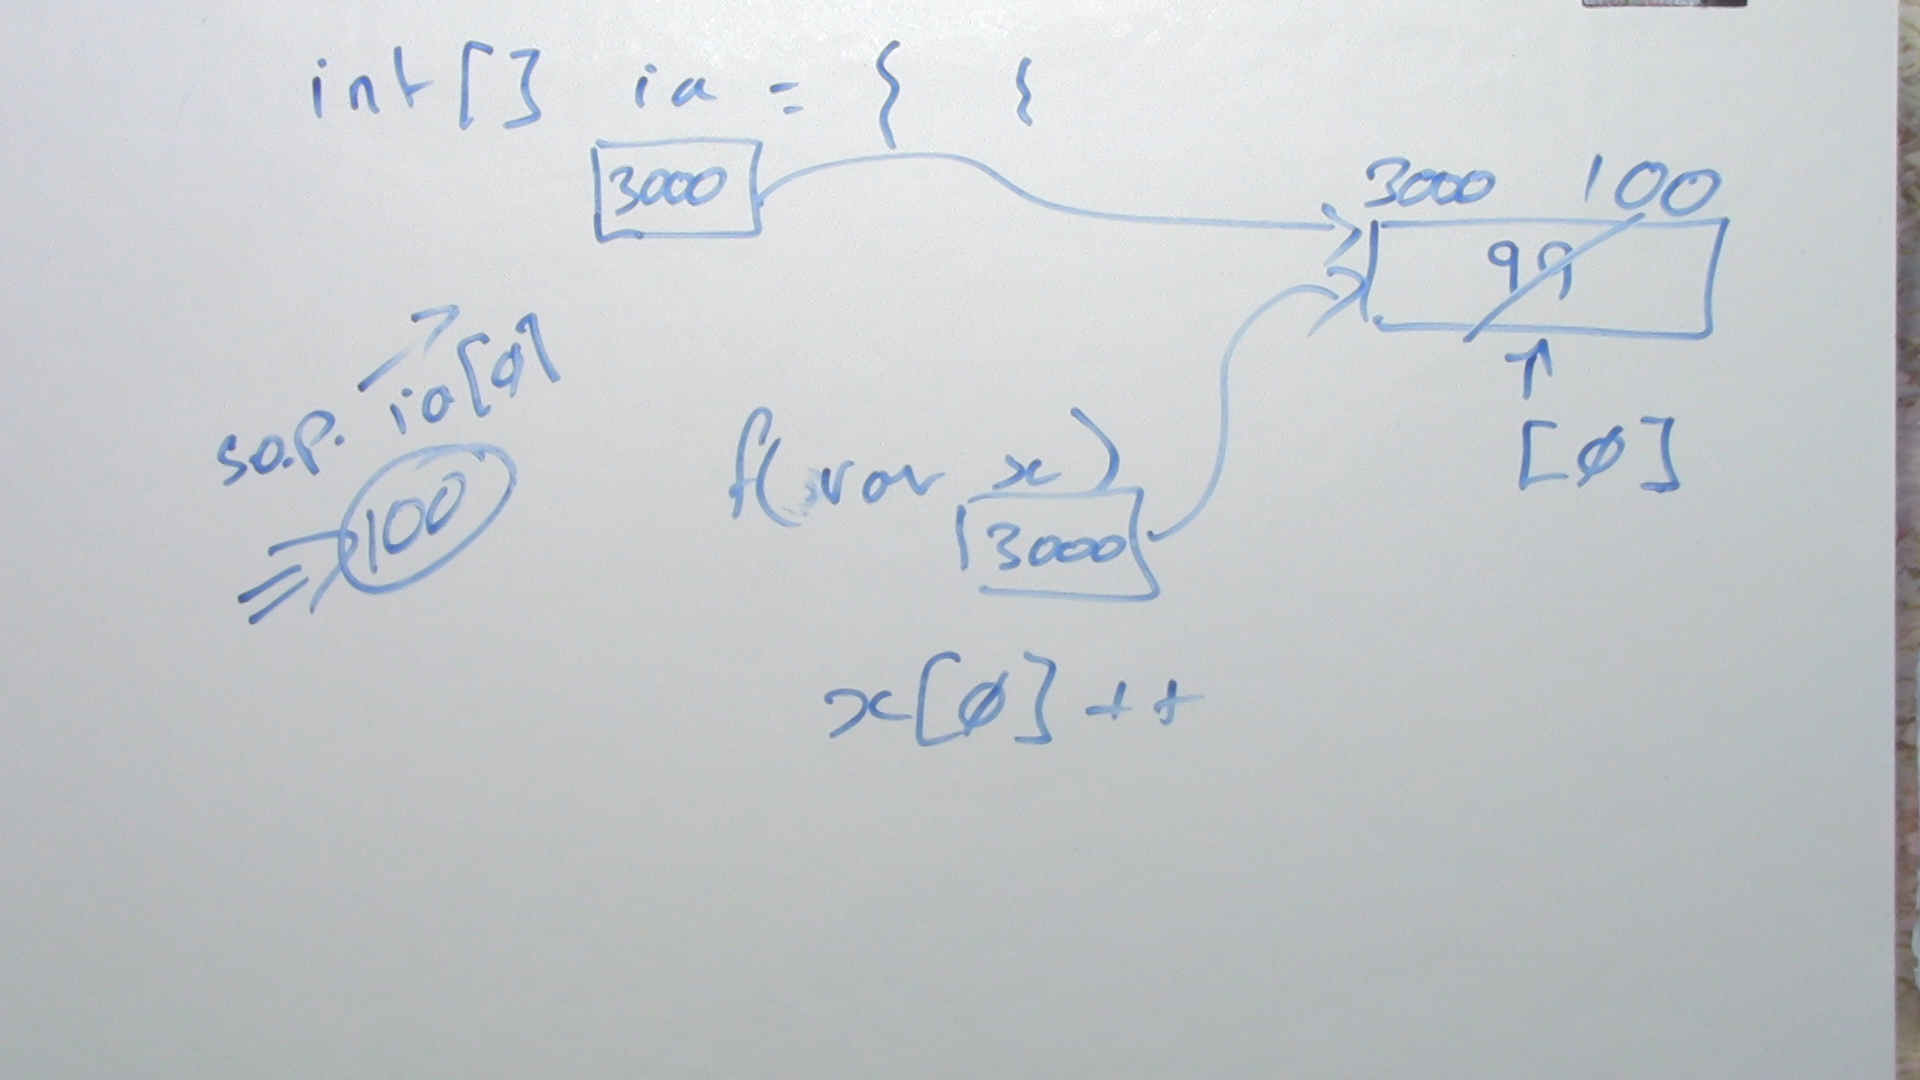 int[] ia = { {
3000
3000 100
99
[0]
s.o.p. ia[0]
100
f( var x )
3000
x[0]++